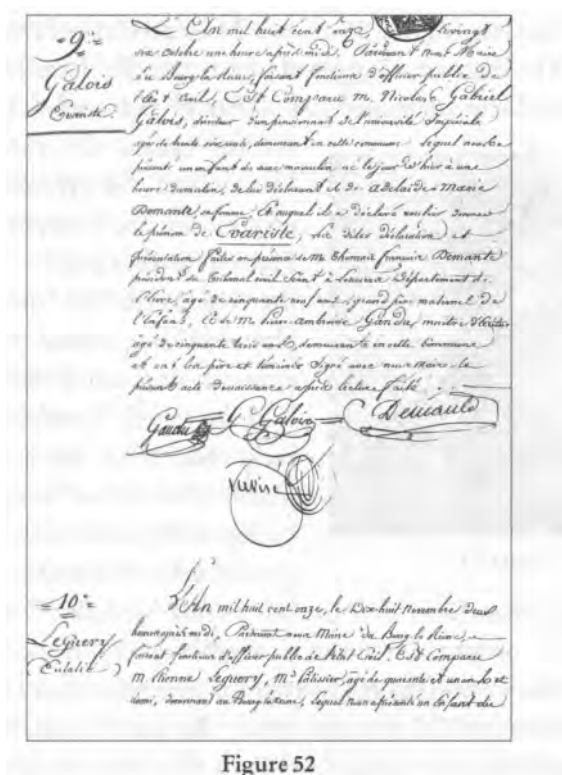 9.e
Galois
Evariste
L'An mil huit cent onze, le vingt
six octobre une heure après midi, Pardevant nous Maire
du Bourg la Reine, faisant fonctions d'officier public de
l'État Civil, Est Comparu M. Nicolas Gabriel
Galois, directeur d'un pensionnat de l'université Impériale
agé de trente six ans, demeurant en cette commune lequel nous a
présenté un enfant de sexe masculin né le jour d'hier à une
heure du matin, de lui déclarant et de adelaïde Marie
Demante, sa femme, Et auquel il a déclaré vouloir donner
le prénom de Evariste, les dites déclaration et
présentation faites en présence de Mr Thomas françois Demante
président du Tribunal civil séant à Louviers Département de
l'Eure, agé de cinquante neuf ans, grand père maternel de
l'Enfant, Et de M. ambroise Gandu, maitre
agé de cinquante trois ans, demeurant en cette Commune
et ont les père et témoins signé avec nous Maire le
présent acte de naissance après lecture faite
Gandu G. Galois Demante
=10.e=
Leguery
(Eulalie)
L'An mil huit cent onze, le Dix huit Novembre deux
heures après midi, Pardevant nous Maire du Bourg la Reine,
faisant fonction d'officier public de l'état Civil. Est Comparu
M. Etienne Leguery, Md. Patissier, agé de quarante et un ans et
demi, demeurant au Bourg la Reine, Lequel nous a présenté un Enfant de
Figure 52